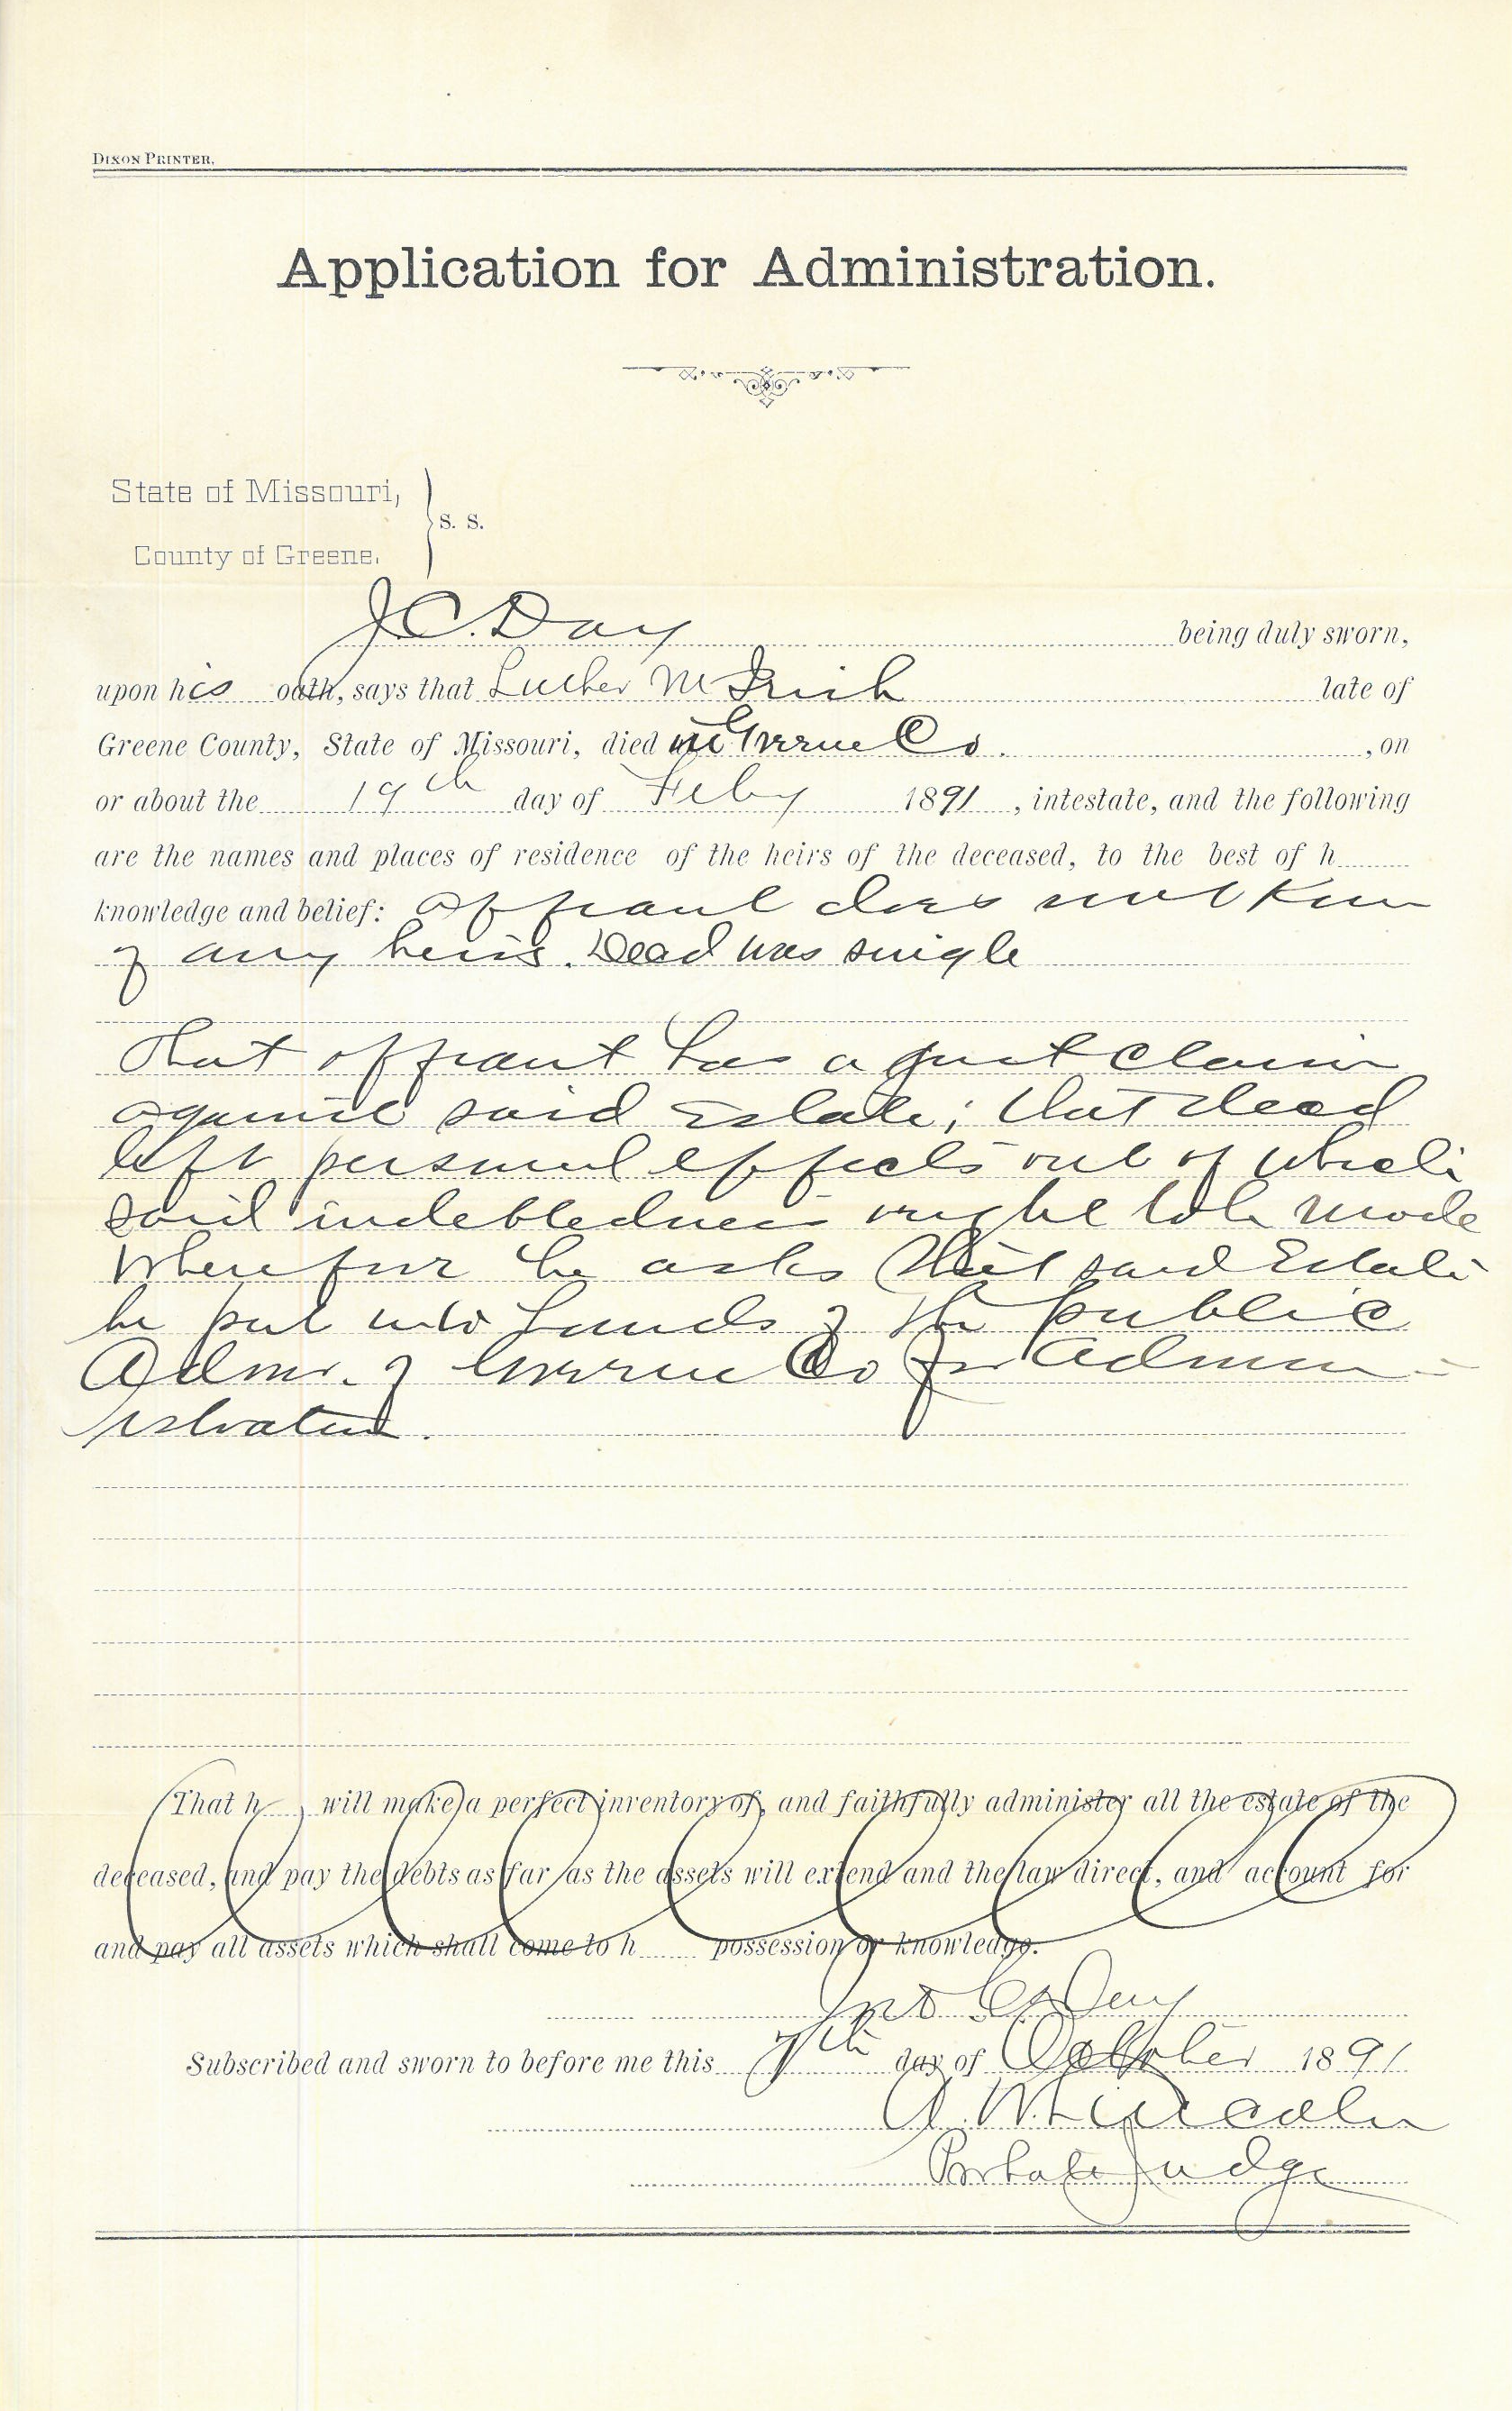 DIXON PRINTER.
Application for Administration.
State of Missouri,
S. S.
County of Greene.
J. C. Day being duly sworn,
upon his oath, says that Luther M late of
Greene County, State of Missouri, died in Greene Co. , on
or about the 19th day of Feby 1891 , intestate, and the following
are the names and places of residence of the heirs of the deceased, to the best of h
knowledge and belief: affiant does not know
of any heirs. Decd was single
That affiant has a just claim
against said Estate; that decd
left personal effects out of which
said indebtedness might be made
Wherefore he asks that said Estate
be put into hands of the public
Admr. of Greene Co for Admin-
istration.
That h will make a perfect inventory of, and faithfully administer all the estate of the
deceased, and pay the debts as far as the assets will extend and the law direct, and account for
and pay all assets which shall come to h possession or knowledge.
Jno C. Day
Subscribed and sworn to before me this 7th day of October 1891
A. W. Lincoln
Probate Judge